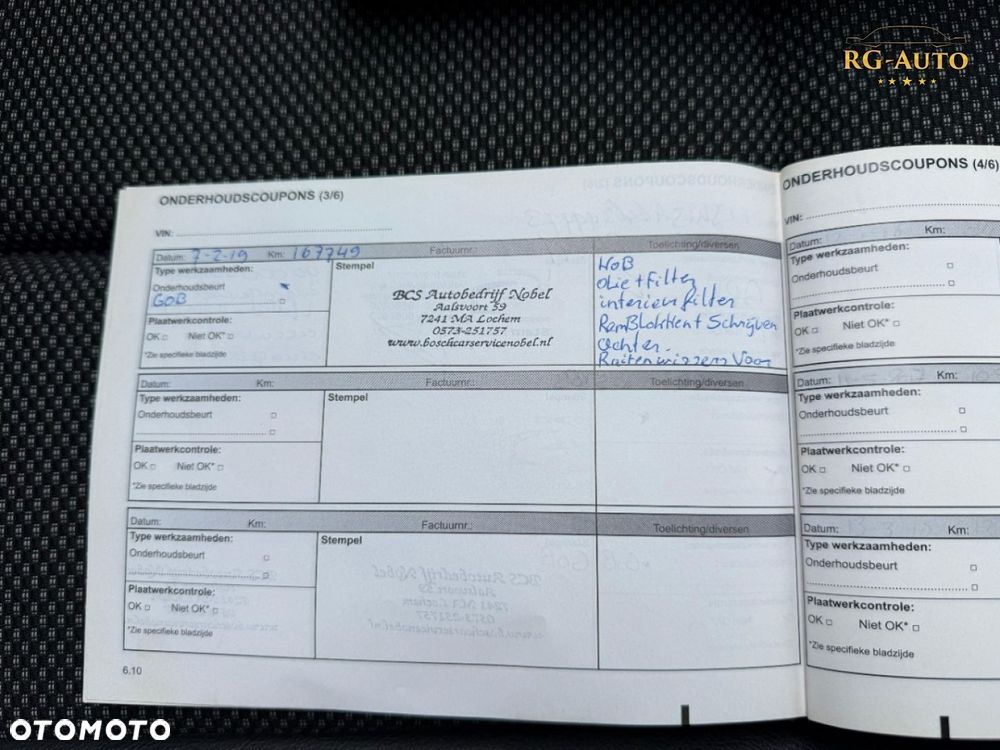 RG-AUTO
ONDERHOUDSCOUPONS (3/6)
VIN:
Datum: 7-2-19 Km: 167749 Factuurnr.: Toelichting/diversen
Type werkzaamheden:
Onderhoudsbeurt
GOB
Plaatwerkcontrole:
OK Niet OK*
*Zie specifieke bladzijde
Stempel
BCS Autobedrijf Nobel
Aalsvoort 59
7241 MA Lochem
0573-251757
www.boschcarservicenobel.nl
WOB
Olie + Filter
interieur filter
Schrijven
Achter.
Ruitenwissers Voor
Datum: Km: Factuurnr.: Toelichting/diversen
Type werkzaamheden:
Onderhoudsbeurt
Plaatwerkcontrole:
OK Niet OK*
*Zie specifieke bladzijde
Stempel
Datum: Km: Factuurnr.: Toelichting/diversen
Type werkzaamheden:
Onderhoudsbeurt
Plaatwerkcontrole:
OK Niet OK*
*Zie specifieke bladzijde
Stempel
6.10
ONDERHOUDSCOUPONS (4/6)
VIN:
Datum: Km:
Type werkzaamheden:
Onderhoudsbeurt
Plaatwerkcontrole:
OK Niet OK*
*Zie specifieke bladzijde
Datum: Km:
Type werkzaamheden:
Onderhoudsbeurt
Plaatwerkcontrole:
OK Niet OK*
*Zie specifieke bladzijde
Datum: Km:
Type werkzaamheden:
Onderhoudsbeurt
Plaatwerkcontrole:
OK Niet OK*
*Zie specifieke bladzijde
OTOMOTO